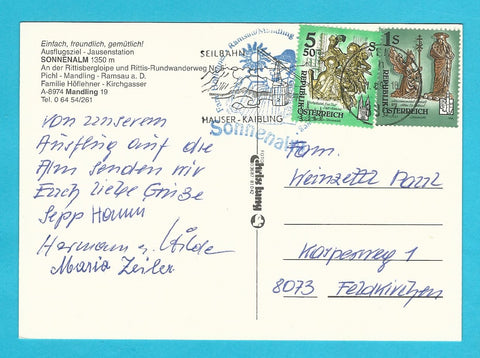 Einfach, freundlich, gemütlich!
Ausflugsziel - Jausenstation
SONNENALM 1350 m
An der Rittisbergloipe und Rittis-Rundwanderweg Nr.
Pichl - Mandling - Ramsau a. D.
Familie Höflehner - Kirchgasser
A-8974 Mandling 19
Tel. 0 64 54/261
SEILBAHN
HAUSER-KAIBLING
Sonnenalm
5 50 S
REPUBLIK ÖSTERREICH
1 S
REPUBLIK ÖSTERREICH
Von unserem
Ausflug auf die
Alm senden wir
Euch liebe Grüße
Sepp
Hermann u. Hilde
Maria Zeiler
Fam.
8073 Feldkirchen